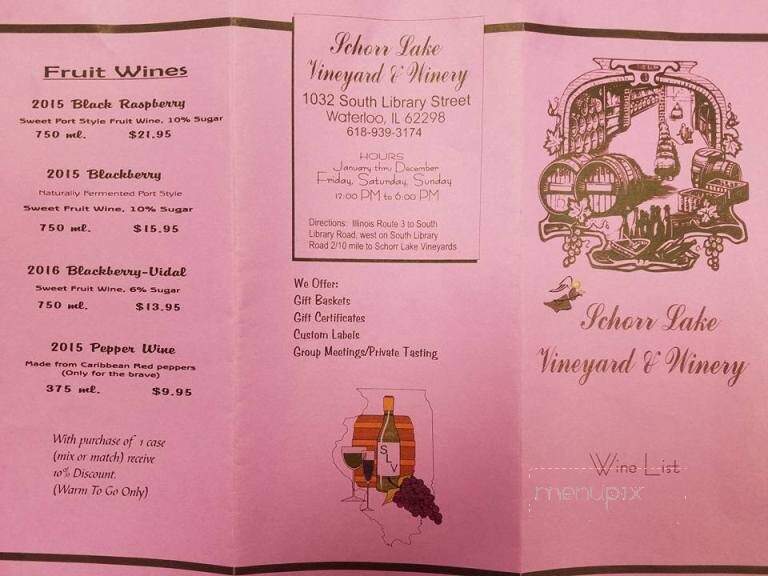 Fruit Wines
2015 Black Raspberry
Sweet Port Style Fruit Wine, 10% Sugar
750 ml. $21.95
2015 Blackberry
Naturally Fermented Port Style
Sweet Fruit Wine, 10% Sugar
750 ml. $15.95
2016 Blackberry-Vidal
Sweet Fruit Wine, 6% Sugar
750 ml. $13.95
2015 Pepper Wine
Made from Caribbean Red peppers
(Only for the brave)
375 ml. $9.95
With purchase of 1 case
(mix or match) receive
10% Discount.
(Warm To Go Only)
Schorr Lake
Vineyard & Winery
1032 South Library Street
Waterloo, IL 62298
618-939-3174
HOURS
January thru December
Friday, Saturday, Sunday
12:00 PM to 6:00 PM
Directions: Illinois Route 3 to South
Library Road, west on South Library
Road 2/10 mile to Schorr Lake Vineyards
We Offer:
Gift Baskets
Gift Certificates
Custom Labels
Group Meetings/Private Tasting
SLV
Schorr Lake
Vineyard & Winery
Wine List
menupix